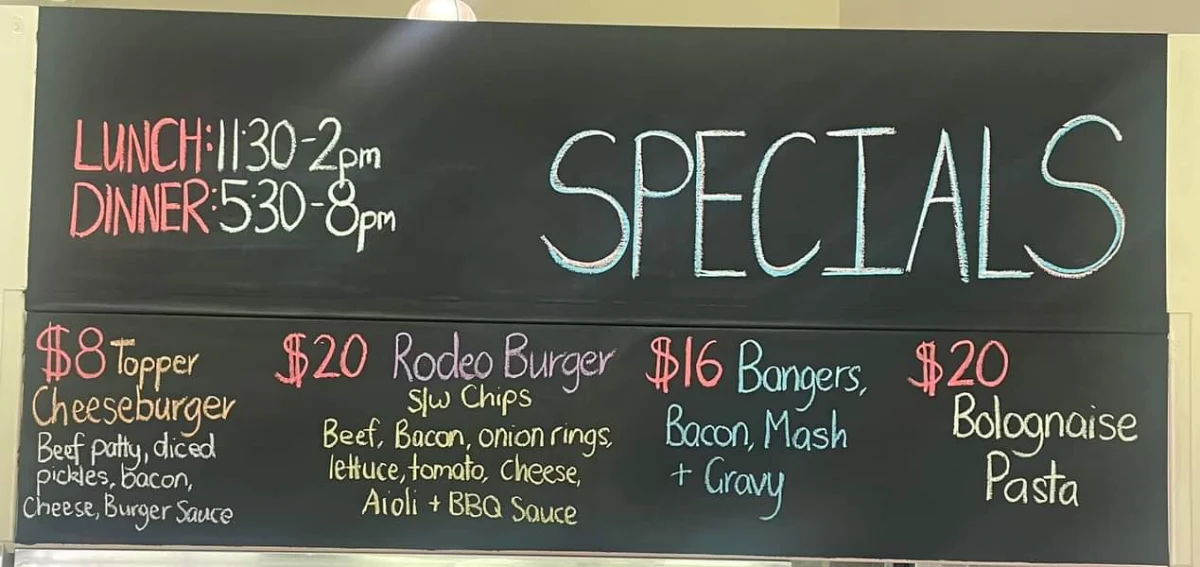 LUNCH: 11:30-2pm
DINNER: 5:30-8pm
SPECIALS
$8 Topper
Cheeseburger
Beef patty, diced
pickles, bacon,
Cheese, Burger Sauce
$20 Rodeo Burger
s/w Chips
Beef, Bacon, onion rings,
lettuce, tomato, cheese,
Aioli + BBQ Sauce
$16 Bangers,
Bacon, Mash
+ Gravy
$20
Bolognaise
Pasta